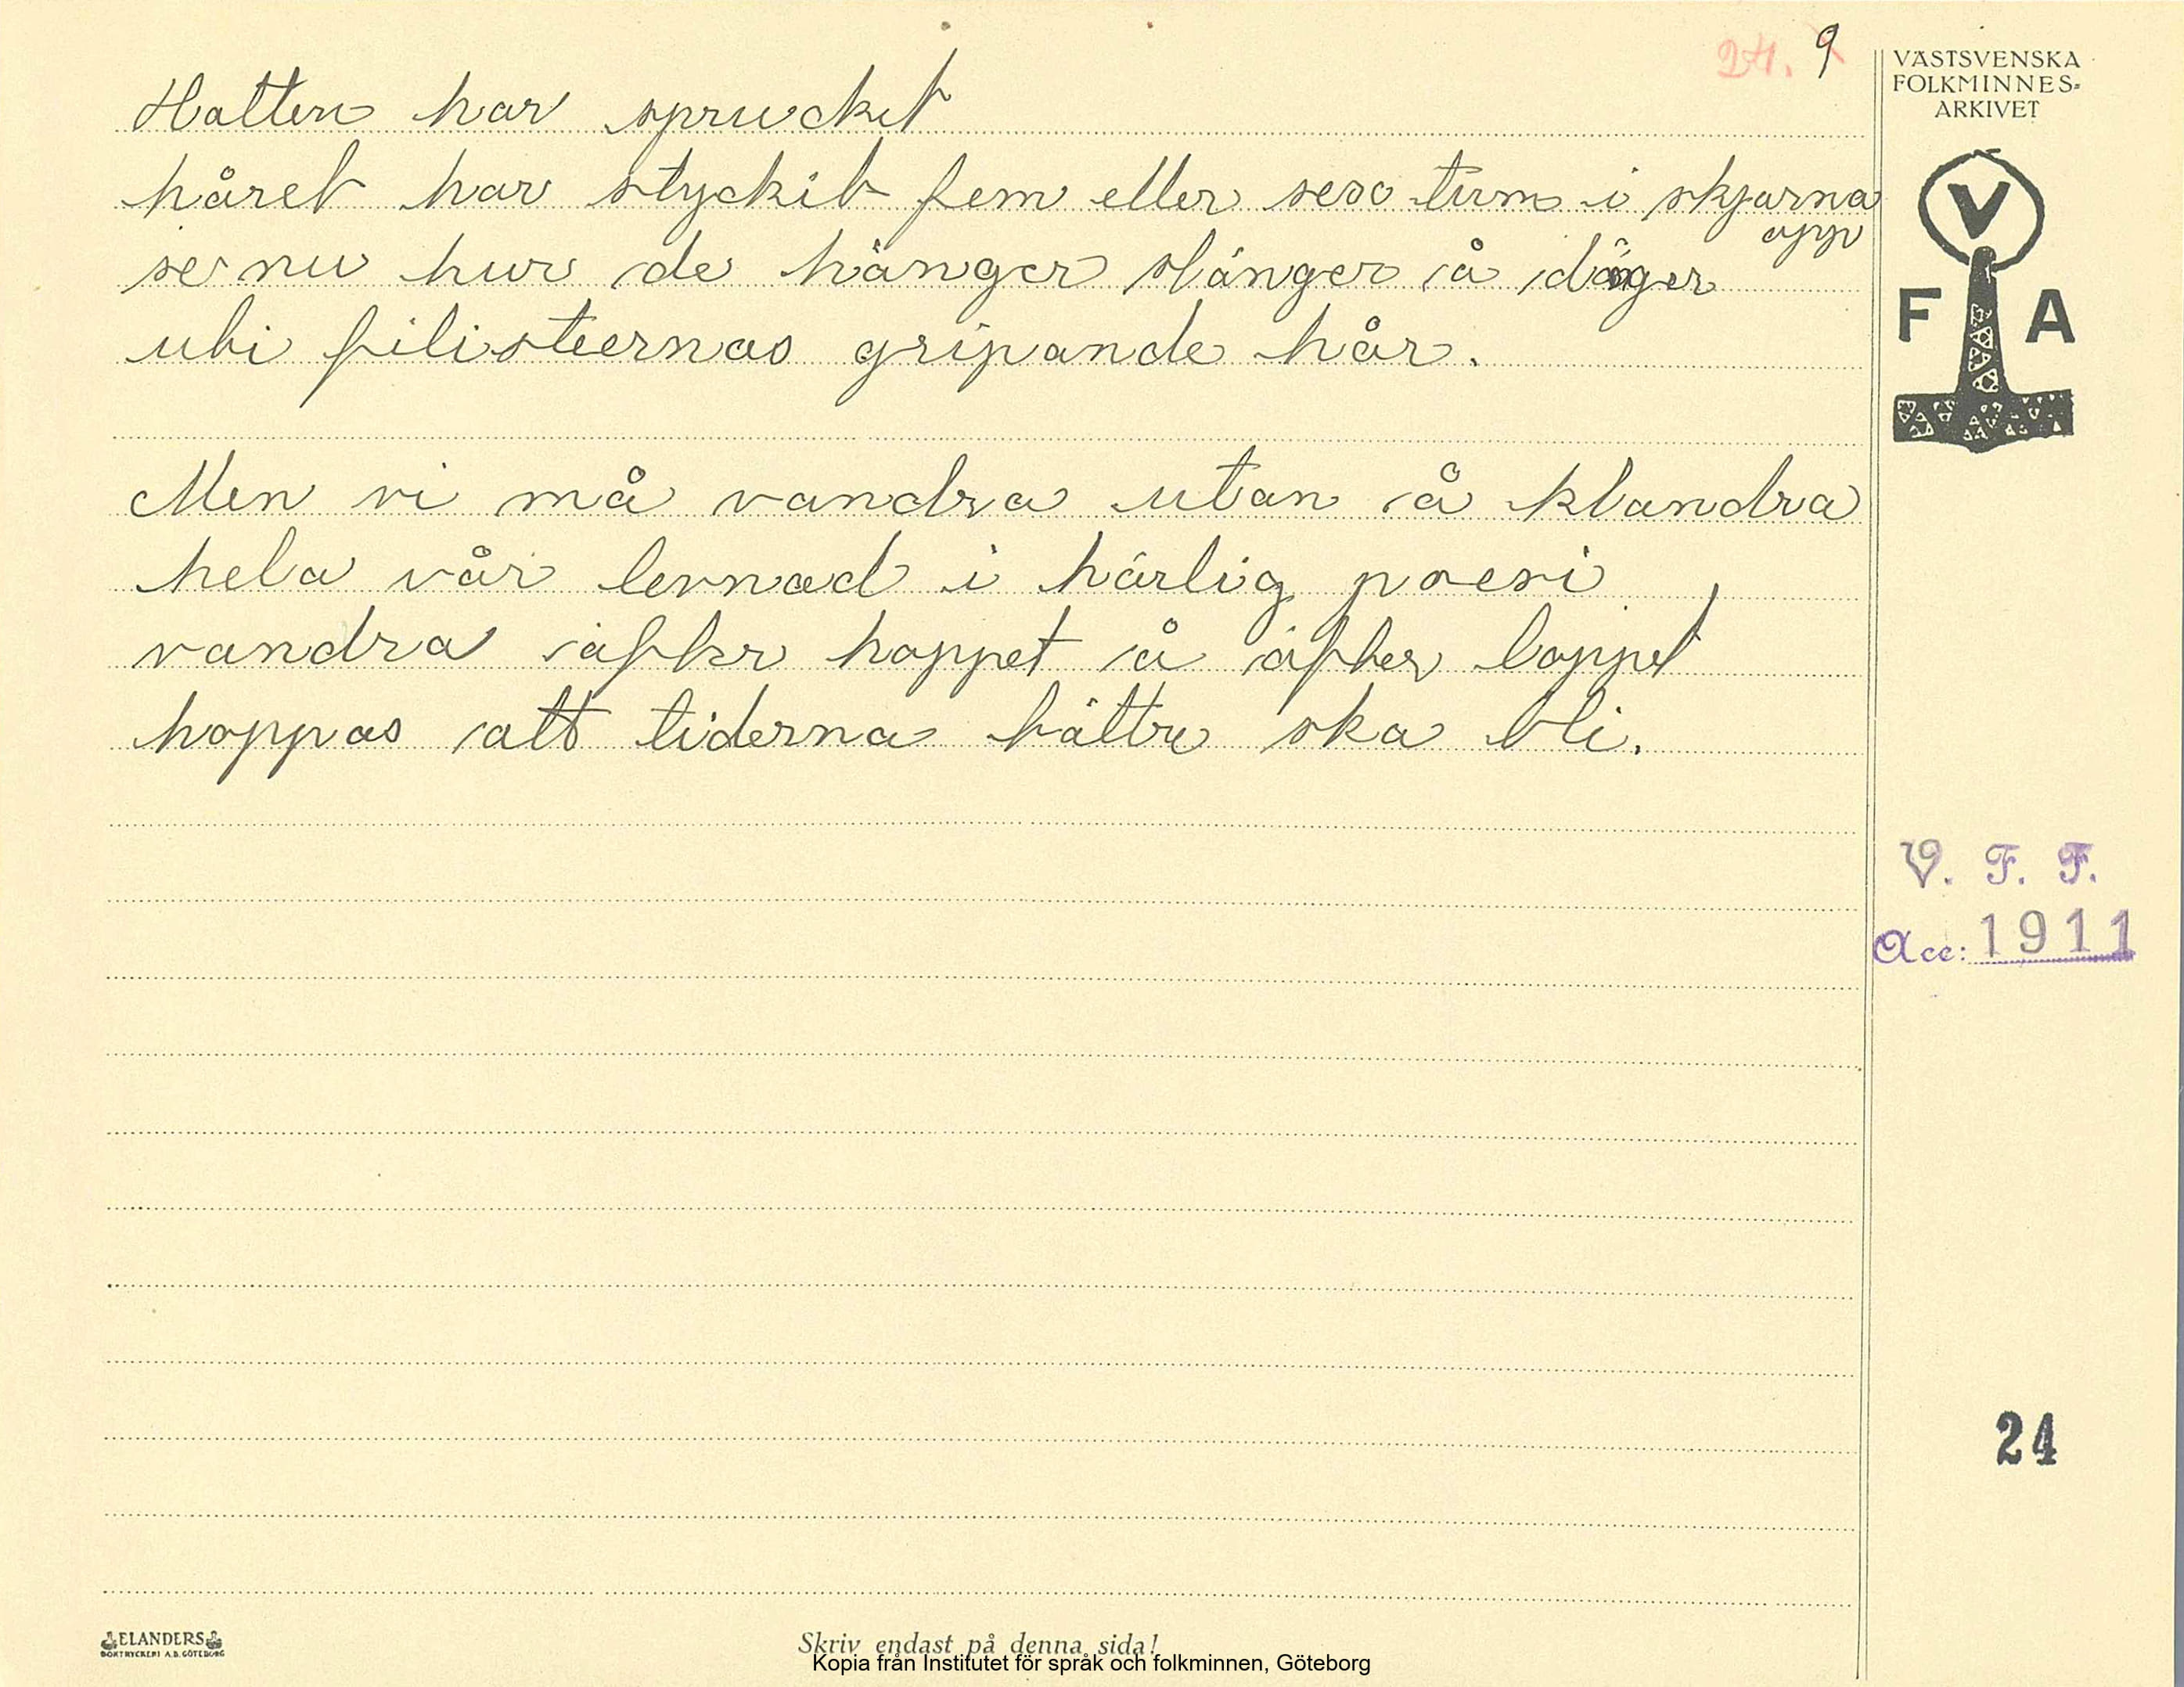 24. 9
Hatten har spruckit
håret har styckit fem eller sexo tum i skjorna
opp
se nu hur de hänger slänger å dänger
uti filisteernas gripande hår.
Men vi må vandra utan å klandra
hela vår levnad i härlig poesi
vandra äfter hoppet å äfter loppet
hoppas att tiderna bättre ska bli.
VÄSTSVENSKA
FOLKMINNES-
ARKIVET
V
F A
V. F. F.
Acc: 1911
24
ELANDERS
BOKTRYCKERI A.B. GÖTEBORG
Skriv endast på denna sida!
Kopia från Institutet för språk och folkminnen, Göteborg